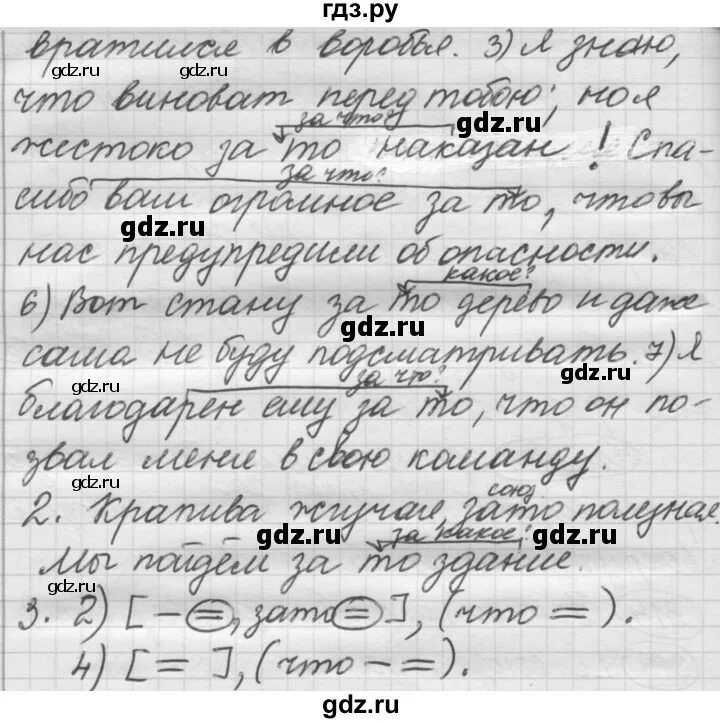 гдз.ру
вратился в воробья. 3) Я знаю,
gdz.ru gdz.ru
что виноват перед тобою; но я
за что?
gdz.ru
жестоко за то наказан! Спа-
за что?
gdz.ru
сибо вам огромное за то, что вы
gdz.ru gdz.ru
нас предупредили об опасности.
какое?
gdz.ru
6) Вот стану за то дерево и даже
gdz.ru
сама не буду подсматривать. 7) Я
за что?
gdz.ru gdz.ru
благодарен ему за то, что он по-
gdz.ru
звал меня в свою команду.
союз
gdz.ru
2. Крапива жгучая, зато полезная.
за какое?
gdz.ru gdz.ru
Мы пойдём за то здание.
gdz.ru
3. 2) [ – = , зато = ], (что = ).
gdz.ru gdz.ru
4) [ = ], (что – = ).
gdz.ru